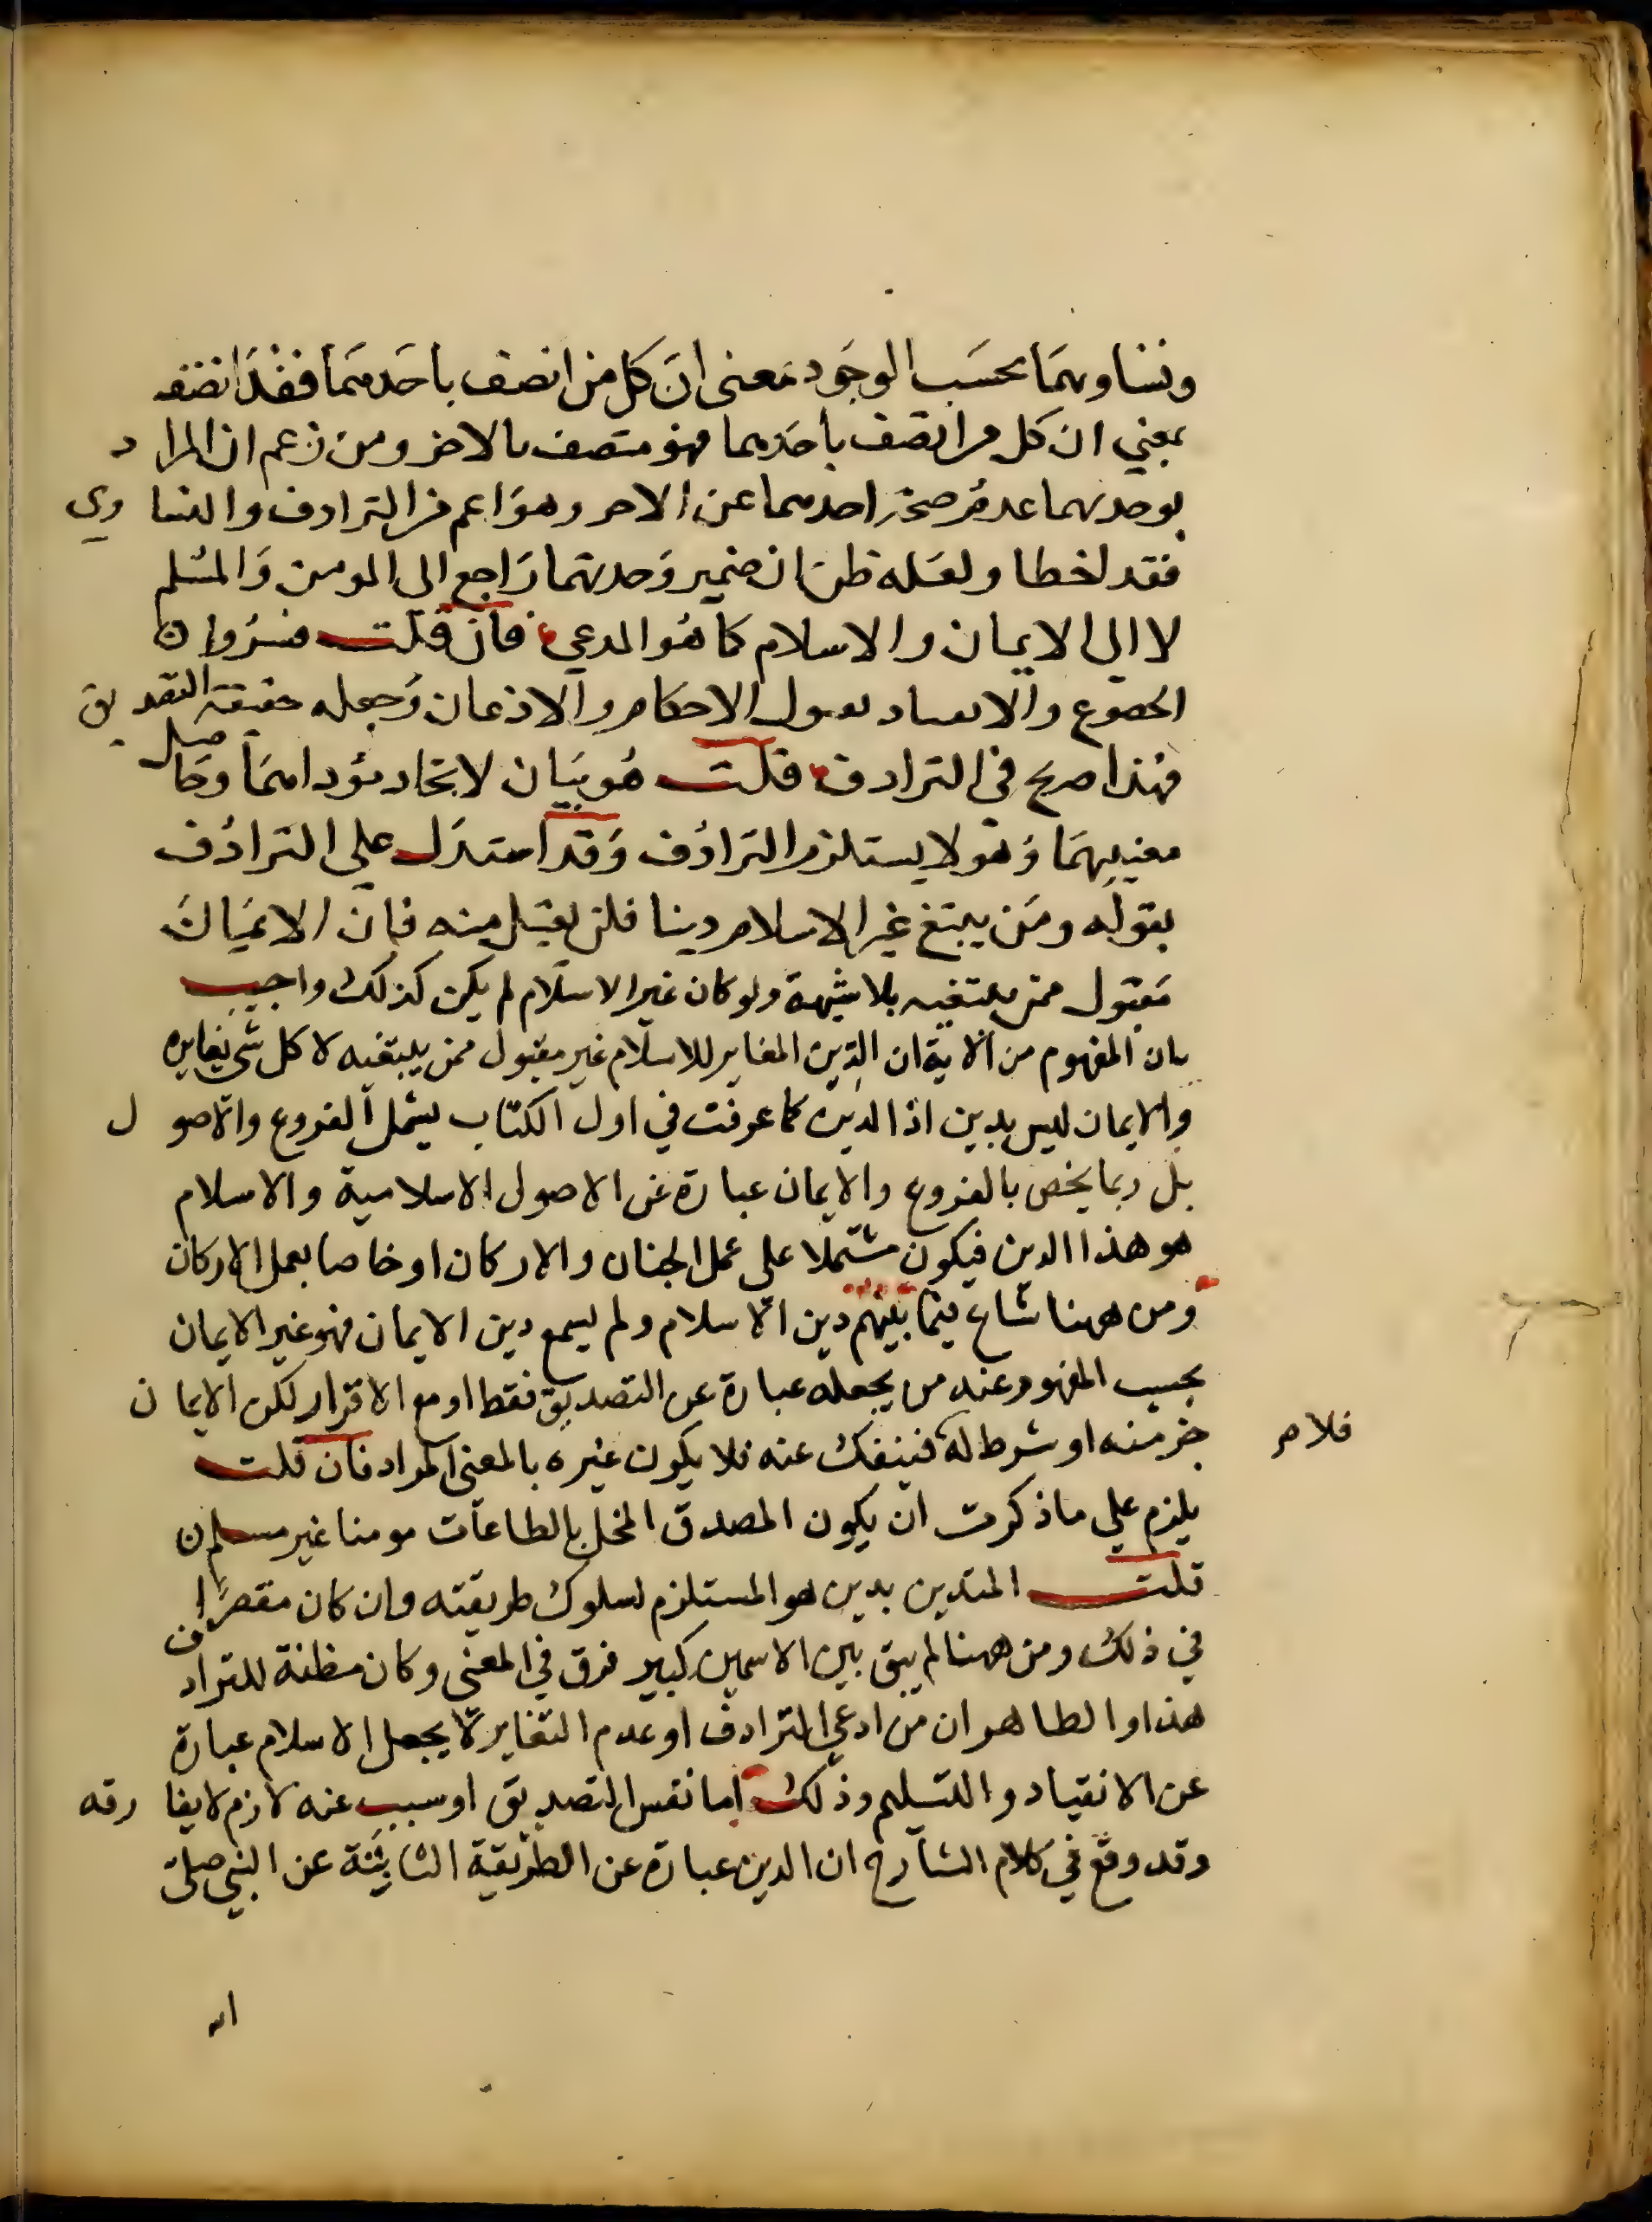 وتساويهما بحسب الوجود بمعنى ان كل من اتصف باحدهما فقد اتصف
بمعني ان كل من اتصف باحدهما فهو متصف بالاخر ومن زعم ان المراد
بوحدتهما عدم صحة احدهما عن الاخر وهو اعم من الترادف والتساوي
فقد اخطا ولعله ظن ان ضمير وحدتهما راجع الى المومن والمسلم
لا الى الايمان والاسلام كما هو المدعي فان قلت فسروا
الخضوع والانقياد بقبول الاحكام والاذعان وجعله حقيقة التصديق
فهذا صريح في الترادف قلت هو بيان لاتحاد مؤداهما وحاصل
معنييهما وهو لا يستلزم الترادف وقد استدل على الترادف
بقوله ومن يبتغ غير الاسلام دينا فلن يقبل منه فان الايمان
مقبول ممن يبتغيه بلا شبهة ولو كان غير الاسلام لم يكن كذلك واجيب
بان المفهوم من الاية ان الدين المغاير للاسلام غير مقبول ممن يبتغيه لا كل شي يغايره
والايمان ليس بدين اذ الدين كما عرفت في اول الكتاب يشمل الفروع والاصول
بل ربما يخص بالفروع والايمان عبارة عن الاصول الاسلامية والاسلام
هو هذا الدين فيكون مشتملا على عمل الجنان والاركان او خاصا بعمل الاركان
ومن ههنا شاع فيما بينهم دين الاسلام ولم يسمع دين الايمان فهو غير الايمان
بحسب المفهوم عند من يجعله عبارة عن التصديق فقط او مع الاقرار لكن الايمان
جزء منه او شرط له فلا ينفك عنه فلا يكون غيره بالمعنى المراد فان قلت
فلام
يلزم علي ما ذكرت ان يكون المصدق المخل بالطاعات مومنا غير مسلم
قلت المتدين بدين هو المستلزم لسلوك طريقته وان كان مقصرا
في ذلك ومن ههنا لم يبق بين الاسمين كبير فرق في المعنى وكان مظنة للترادف
هذا والظاهر ان من ادعي الترادف او عدم التغاير لا يجعل الاسلام عبارة
عن الانقياد والتسليم وذلك اما نفس التصديق او سبب عنه لازم لا يفارقه
وقد وقع في كلام الشارح ان الدين عبارة عن الطريقة الثابتة عن النبي صلى
الله